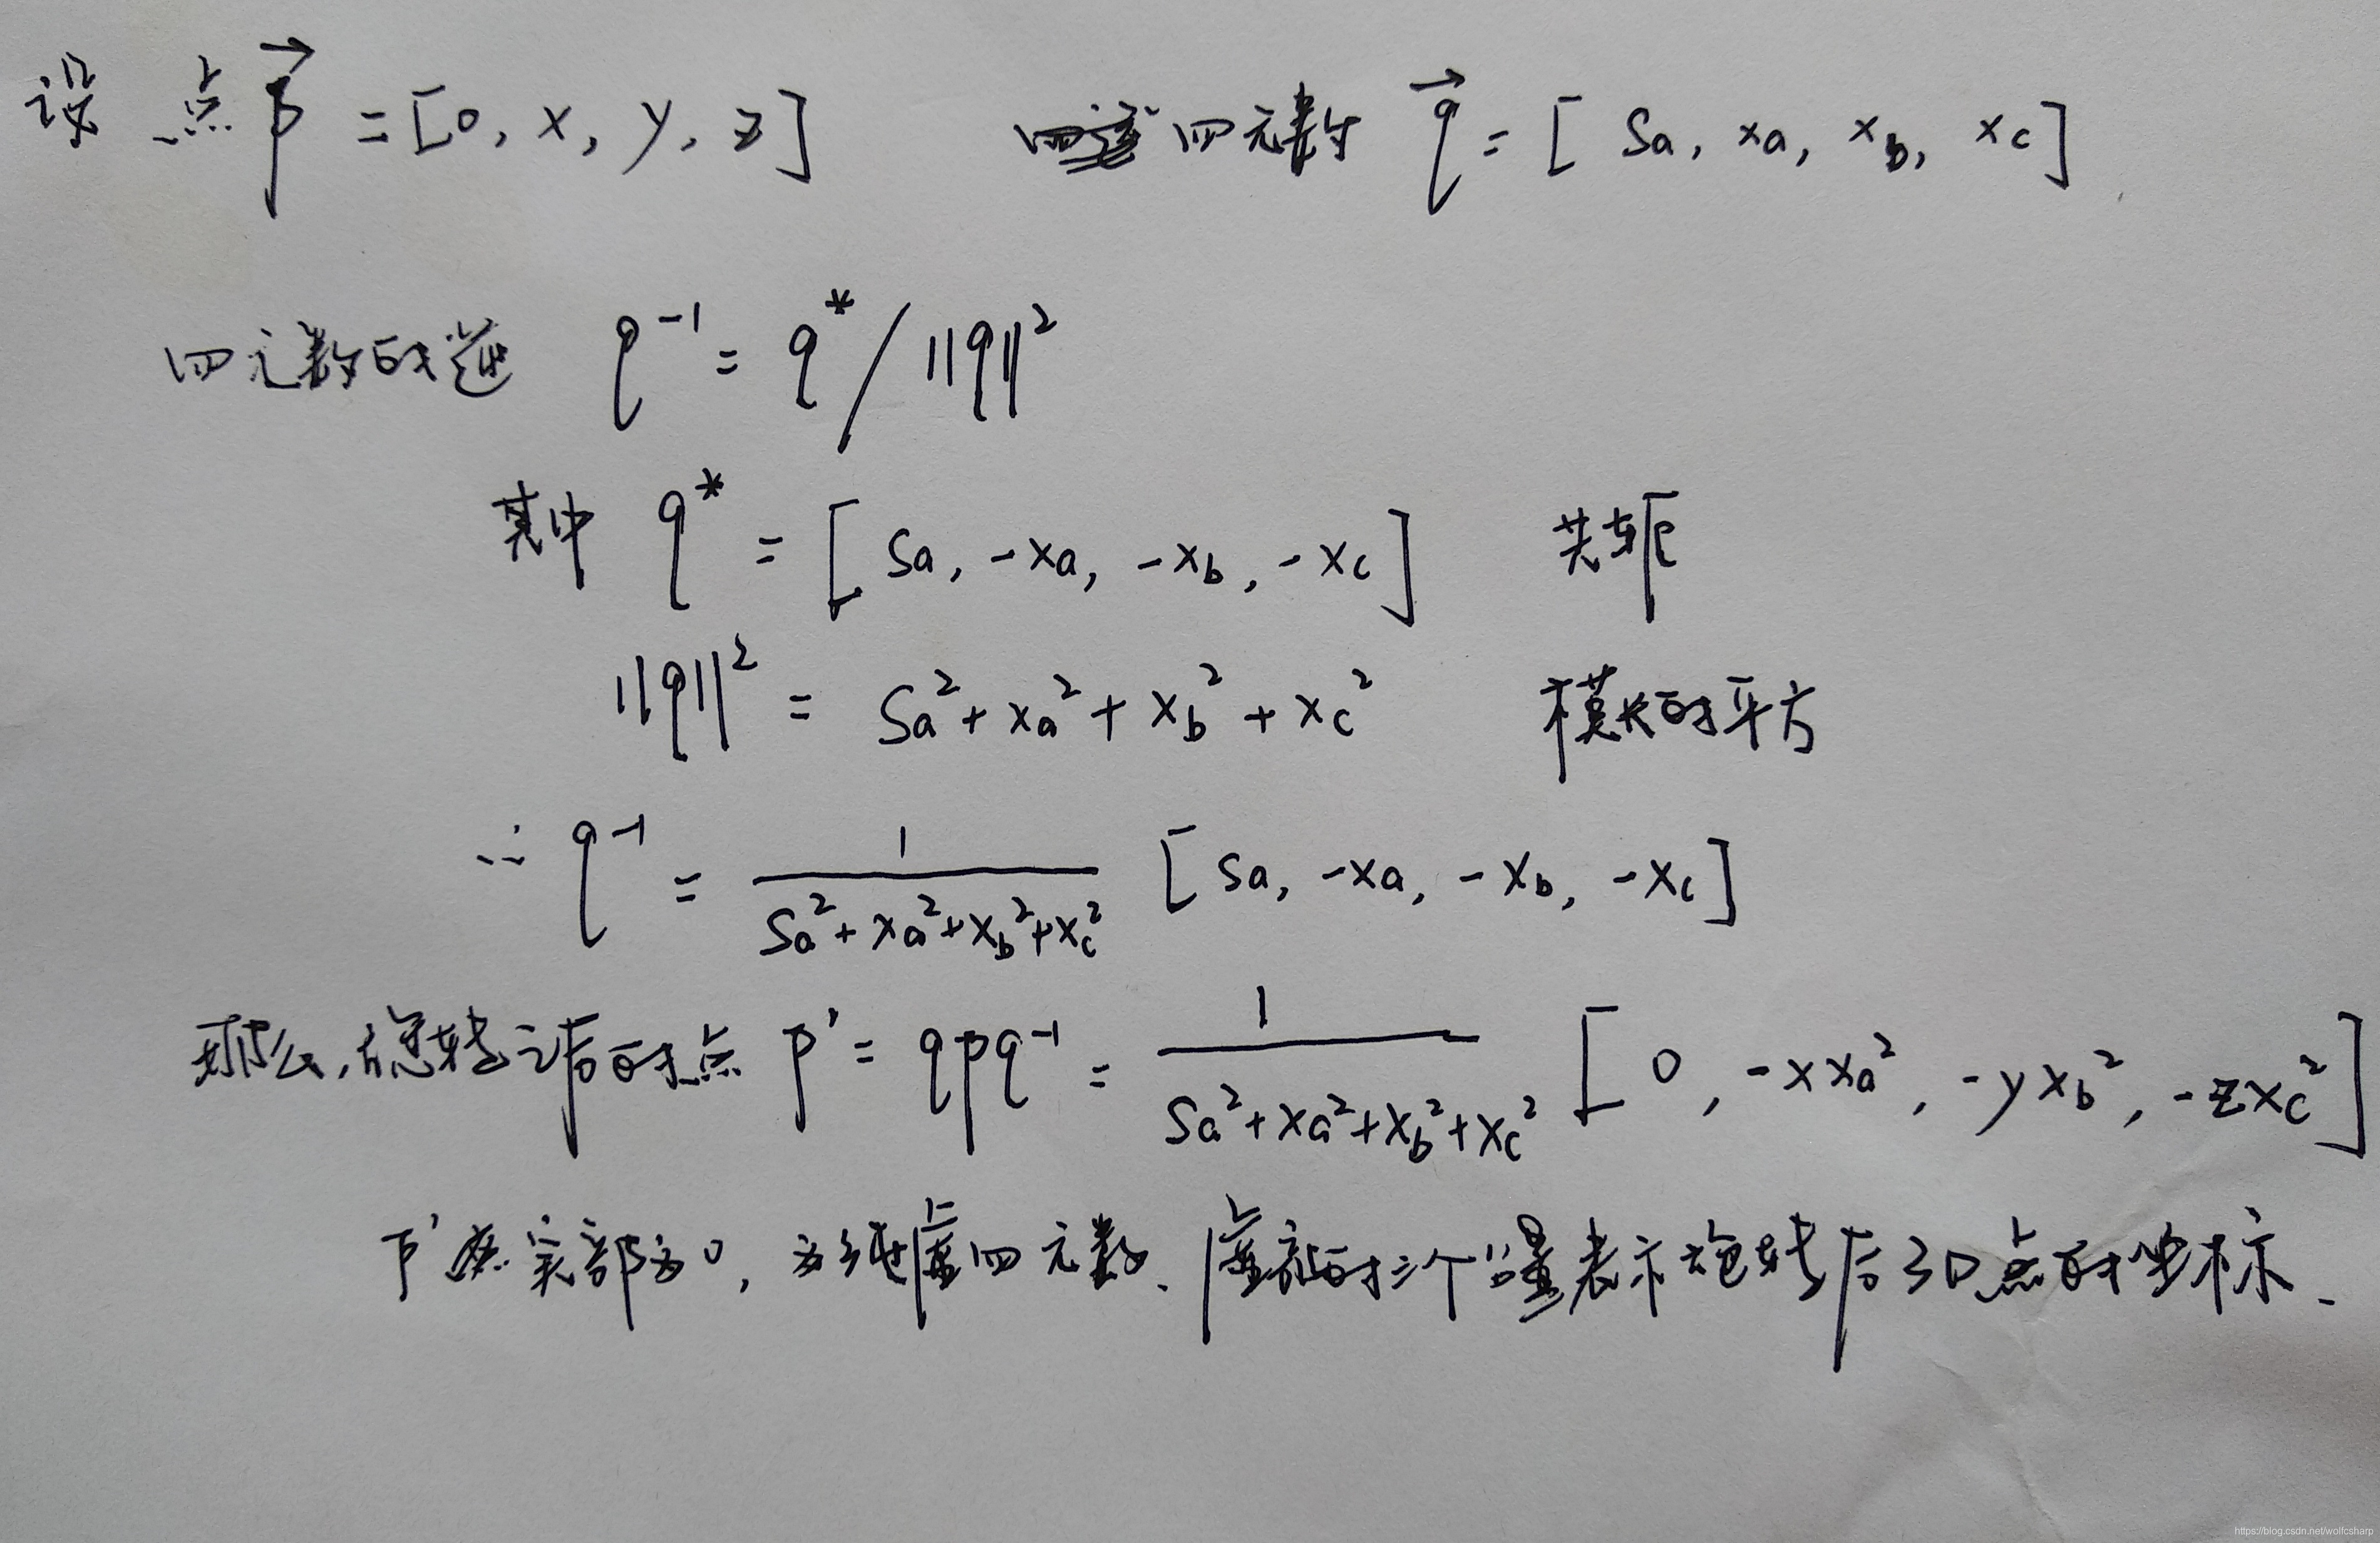 设 点 p⃗ = [0, x, y, z] 四元数 q⃗ = [ Sa, xa, xb, xc ]
四元数的逆 q⁻¹ = q* / ||q||²
其中 q* = [ Sa, -xa, -xb, -xc ] 共轭
||q||² = Sa² + xa² + xb² + xc² 模长的平方
∴ q⁻¹ = 1 / (Sa² + xa² + xb² + xc²) [ Sa, -xa, -xb, -xc ]
那么, 旋转之后的点 p' = qpq⁻¹ = 1 / (Sa² + xa² + xb² + xc²) [ 0, -xxa², -yxb², -zxc² ]
p' 实部为0, 为纯虚四元数、虚部的三个分量表示旋转后3D点的坐标.
https://blog.csdn.net/wolfcsharp